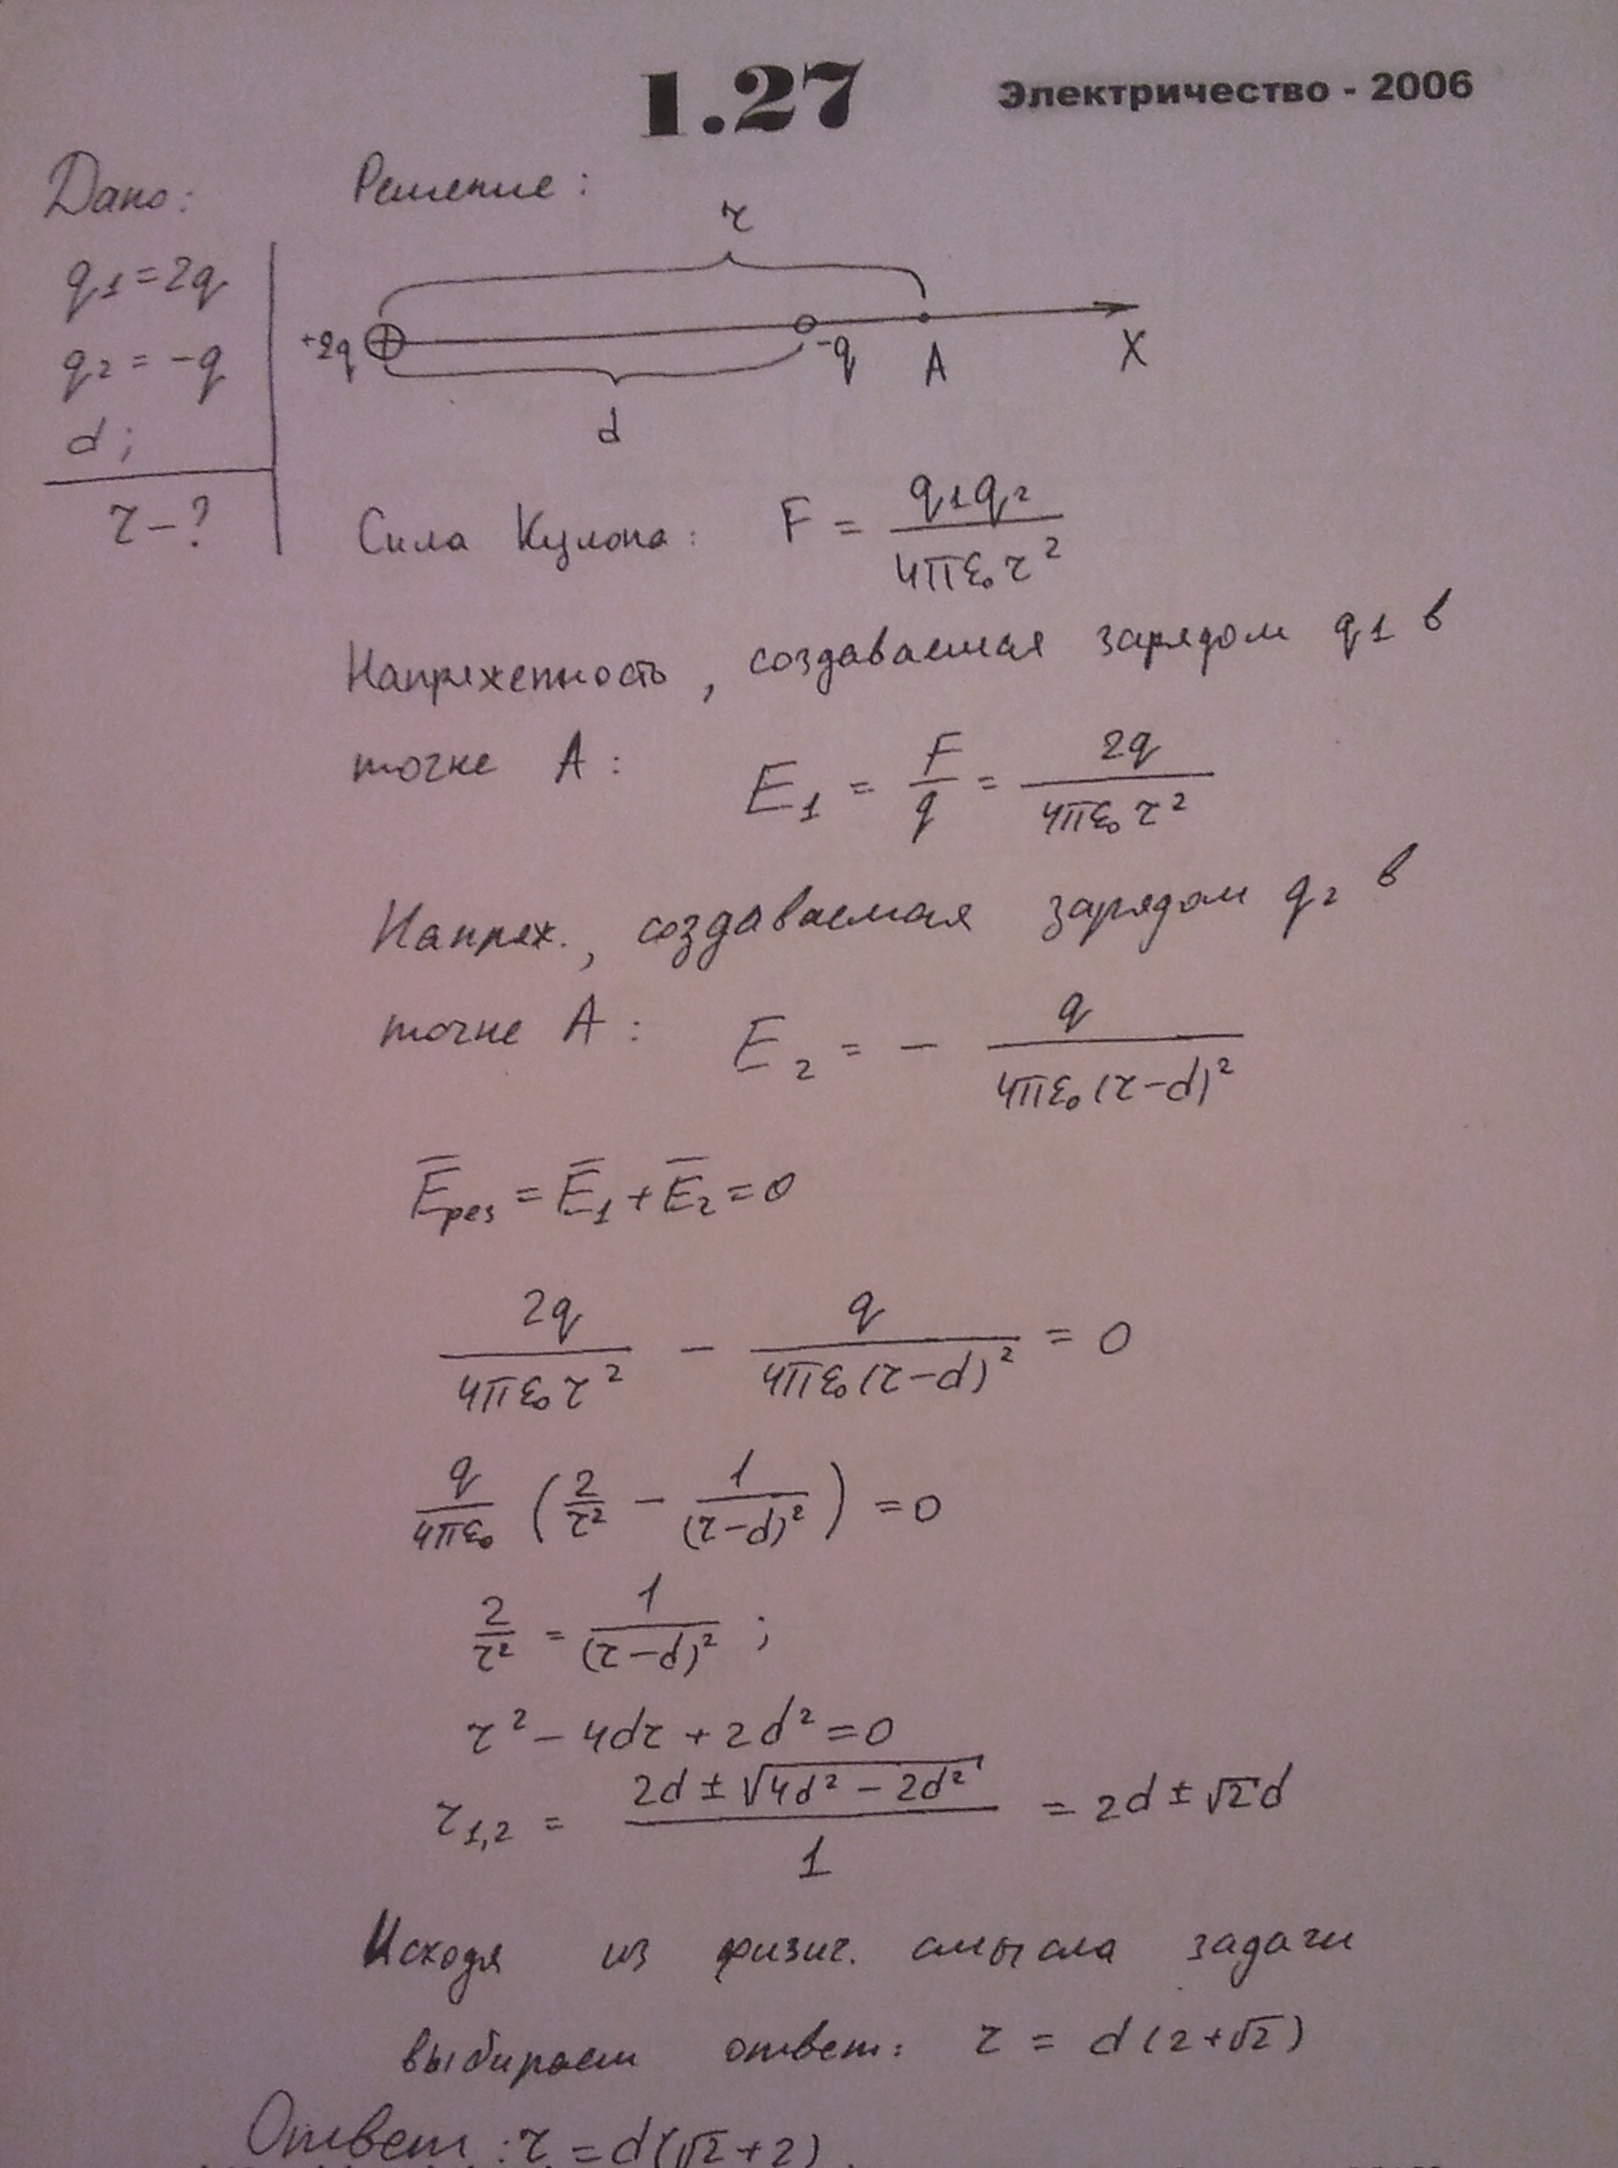 Электричество - 2006
1.27
Дано: Решение:
q₁ = 2q
q₂ = -q
d;
r - ?
r
+2q -q A X
d
Сила Кулона: F = q₁q₂ / 4πε₀r²
Напряженность, создаваемая зарядом q₁ в
точке A: E₁ = F/q = 2q / 4πε₀r²
Напряж., создаваемая зарядом q₂ в
точке A: E₂ = - q / 4πε₀(r-d)²
E̅рез = E̅₁ + E̅₂ = 0
2q / 4πε₀r² - q / 4πε₀(r-d)² = 0
q / 4πε₀ (2/r² - 1/(r-d)²) = 0
2/r² = 1/(r-d)² ;
r² - 4dr + 2d² = 0
r₁,₂ = (2d ± √4d² - 2d²) / 1 = 2d ± √2d
Исходя из физич. смысла задачи
выбираем ответ: r = d(2+√2)
Ответ: r = d(√2+2)